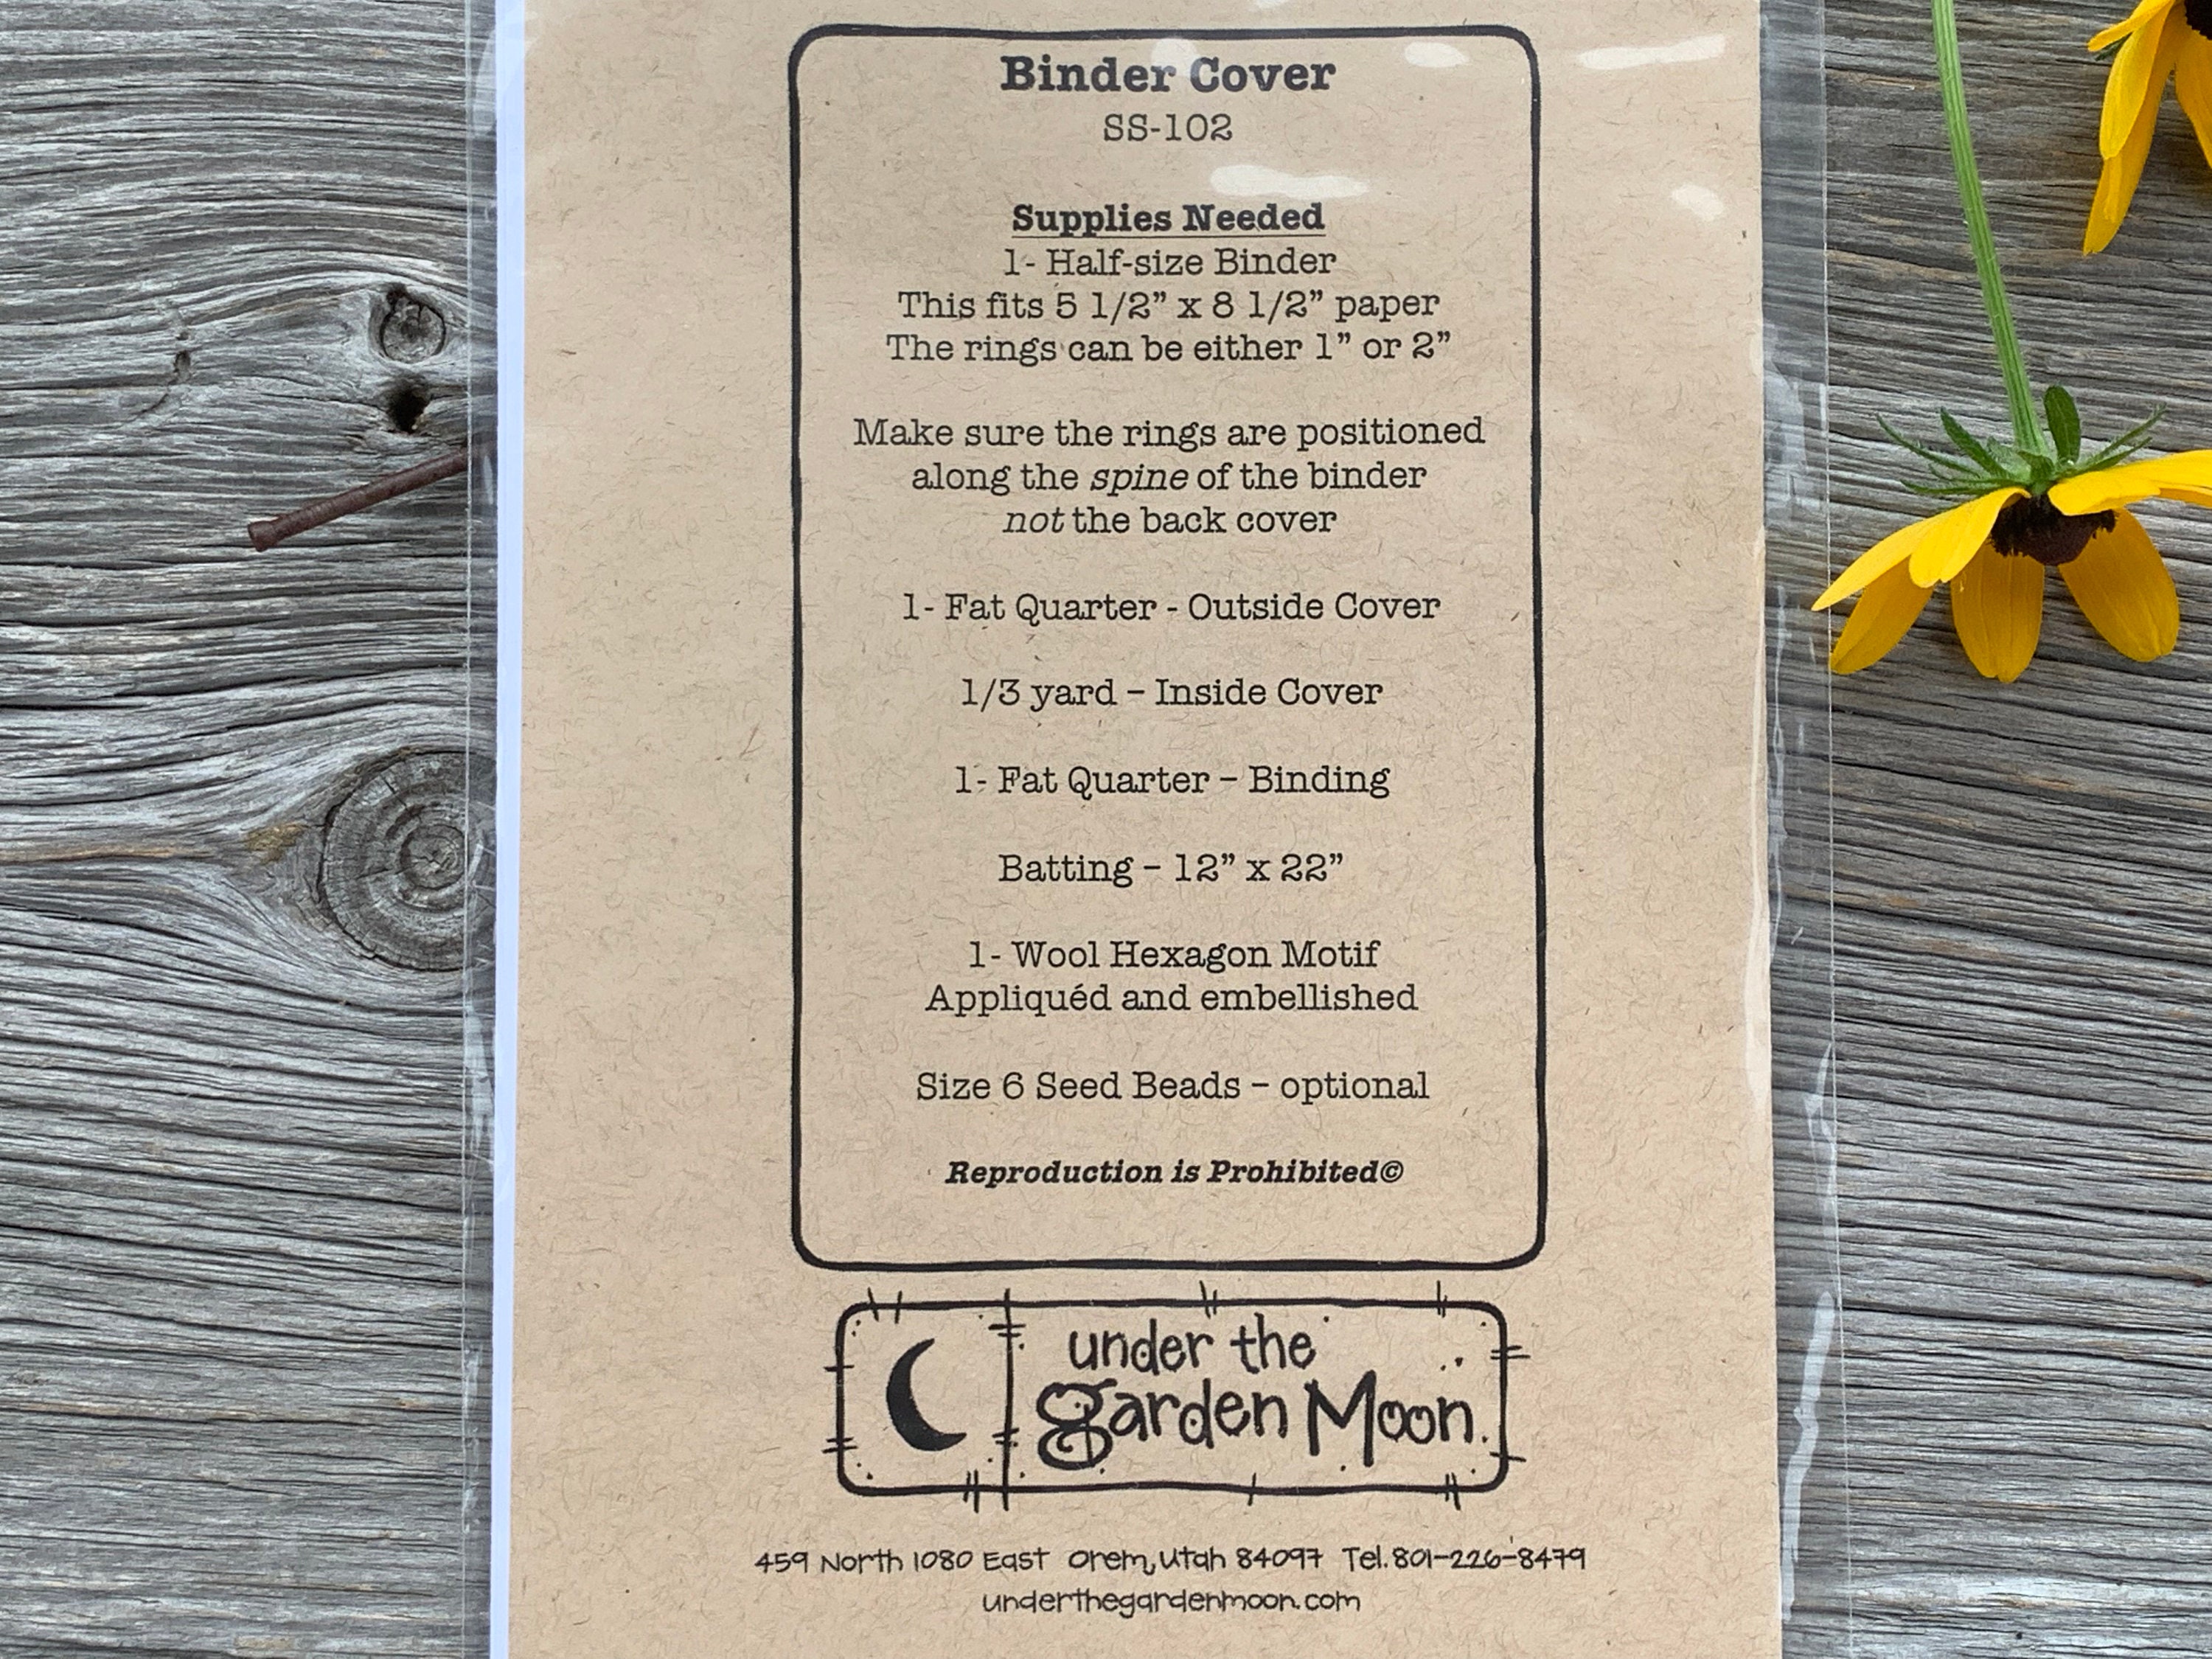 Binder Cover
SS-102
Supplies Needed
1- Half-size Binder
This fits 5 1/2” x 8 1/2” paper
The rings can be either 1” or 2”
Make sure the rings are positioned
along the spine of the binder
not the back cover
1- Fat Quarter - Outside Cover
1/3 yard – Inside Cover
1- Fat Quarter – Binding
Batting – 12” x 22”
1- Wool Hexagon Motif
Appliquéd and embellished
Size 6 Seed Beads – optional
Reproduction is Prohibited©
under the
garden Moon.
459 North 1080 East Orem, Utah 84097 Tel. 801-226-8479
underthegardenmoon.com